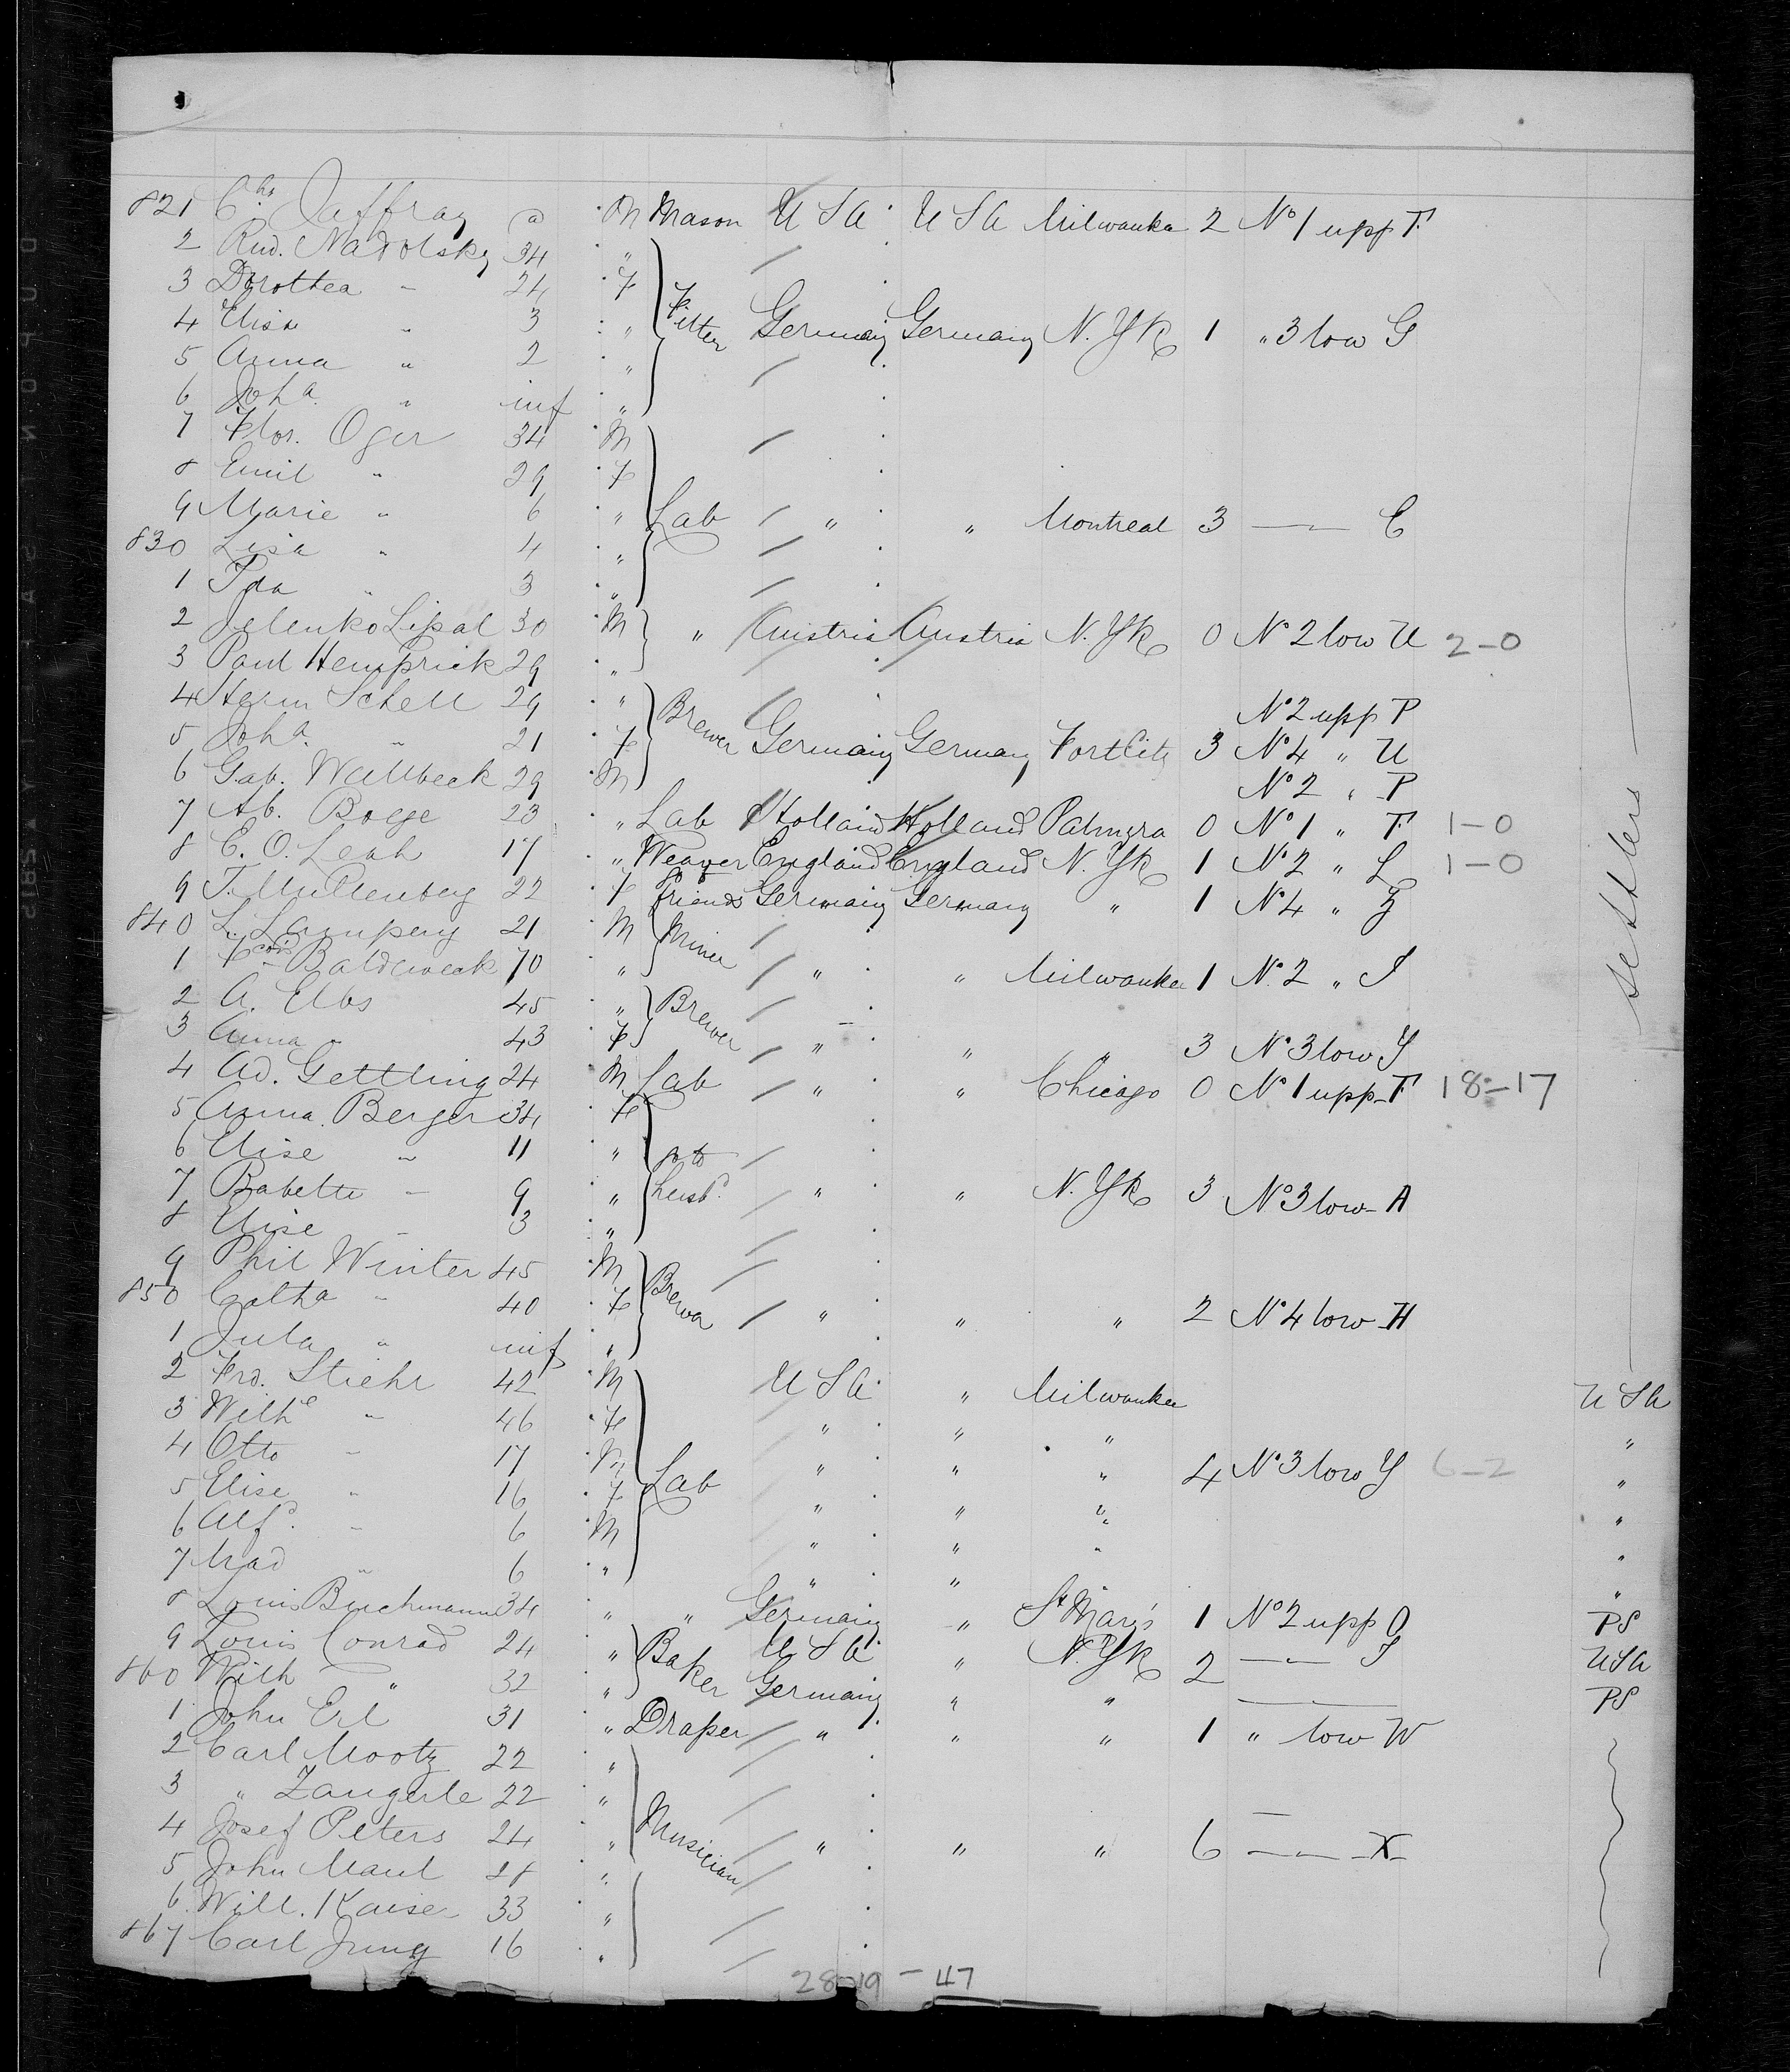 821 Chs Jaffray a M Mason U S A U S A Milwaukee 2 No 1 upp F
2 Rud. Nadolsky 34 "
3 Dorothea " 24 F
4 Elisa " 3 " Fitter Germany Germany N. Yk 1 " 3 low G
5 Anna " 2 "
6 Joha " inf "
7 Flor. Oger 34 M
8 Emil " 29 F
9 Marie " 6 " Lab " " Montreal 3 — " — C
830 Lisa " 4 "
1 Ida " 3 "
2 Jelenko Lipal 30 M " Austria Austria N. Yk 0 No 2 low U 2-0
3 Paul Hemprick 29 "
4 Herm Schell 29 " No 2 upp P
5 Joha " 21 F Brewer Germany Germany Fort City 3 No 4 " U
6 Gab. Wallbeck 29 M No 2 " P
7 Ab. Boege 23 " Lab Holland Holland Palmyra 0 No 1 " F 1-0
8 E. O. Leah 17 " Weaver England England N. Yk 1 No 2 " L 1-0
9 T. Mullenberg 22 F friends Germany Germany " 1 No 4 " Z
840 L. Lampery 21 M Miner
1 Baldeweck 70 " " " Milwaukee 1 No 2 " I
2 A. Elbs 45 " Brewer
3 Anna " 43 F " " " 3 No 3 low Y
4 Ad. Gettling 24 M Lab " " Chicago 0 No 1 upp F 18-17
5 Anna Berger 34 F
6 Elise " 11 " to
7 Babette " 9 " husbd " " N. Yk 3 No 3 low A
8 Elise " 3 "
9 Phil Winter 45 M
850 Catha " 40 F Brewer " " " 2 No 4 low H
1 Jula " inf "
2 Frd. Stiehr 42 M U S A " Milwaukee U S A
3 Wilhe " 46 F " " " "
4 Otto " 17 M " " " 4 No 3 low Y 6-2 "
5 Elise " 16 F Lab " " " "
6 Alfd " 6 M " " " "
7 Mad " 6 " " " "
8 Louis Buchmann 34 " " Germany " St Mary's 1 No 2 upp O PS
9 Louis Conrad 24 " Baker U S A " N. Yk 2 — " — I USA
860 Wilh " 32 " Germany " " PS
1 John Erl 31 " Draper " " " 1 " low W
2 Carl Mootz 22 "
3 " Zangerle 22 "
4 Josef Peters 24 " Musician " " " 6 — " — X
5 John Maul 28 "
6 Will. Kaise 33 "
867 Carl Jung 16 "
28-19-47
settlers